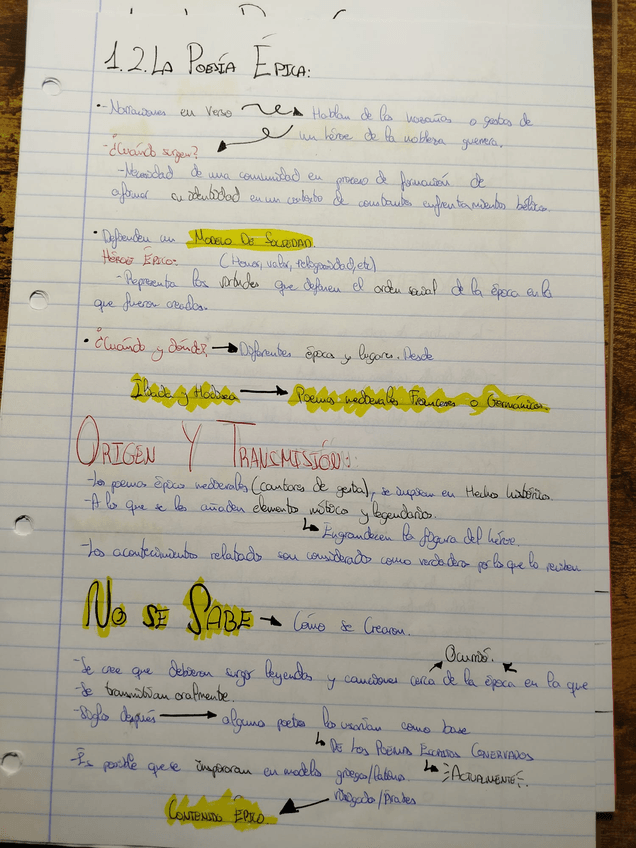 1.2. La Poesía Épica:
- Narraciones en verso → Hablan de las hazañas o gestas de
un héroe de la nobleza guerrera.
- ¿Cuándo surgen?
- Necesidad de una comunidad en proceso de formación de
afirmar su identidad en un contexto de constantes enfrentamientos bélicos.
• Defienden un Modelo De Sociedad.
Héroe Épico: (Honor, valor, religiosidad, etc)
- Representa las virtudes que definen el orden social de la época en la
que fueron creados.
• ¿Cuándo y dónde? → Diferentes época y lugares. Desde
Iliada y Hodisea → Poemas medievales Franceses o Germánicos.
Origen Y Transmisión:
- Los poemas épico medievales (cantares de gesta), se inspiran en Hecho histórico.
- A lo que se les añaden elementos míticos y legendarios.
↳ Engrandecen la figura del héroe.
- Los acontecimientos relatados son considerado como verdadero por lo que lo reciben
No se Sabe → Cómo se Crearon.
Ocurrió.
- Se cree que debieron surgir leyendas y canciones cerca de la época en la que
- Se transmitían oralmente.
- Siglo después → alguno poetas las usarían como base
↳ De los Poemas Escritos Conservados
- Es posible que se inspiraran en modelos griegos/latino. ↳ Actualmente
Contenido Épico.